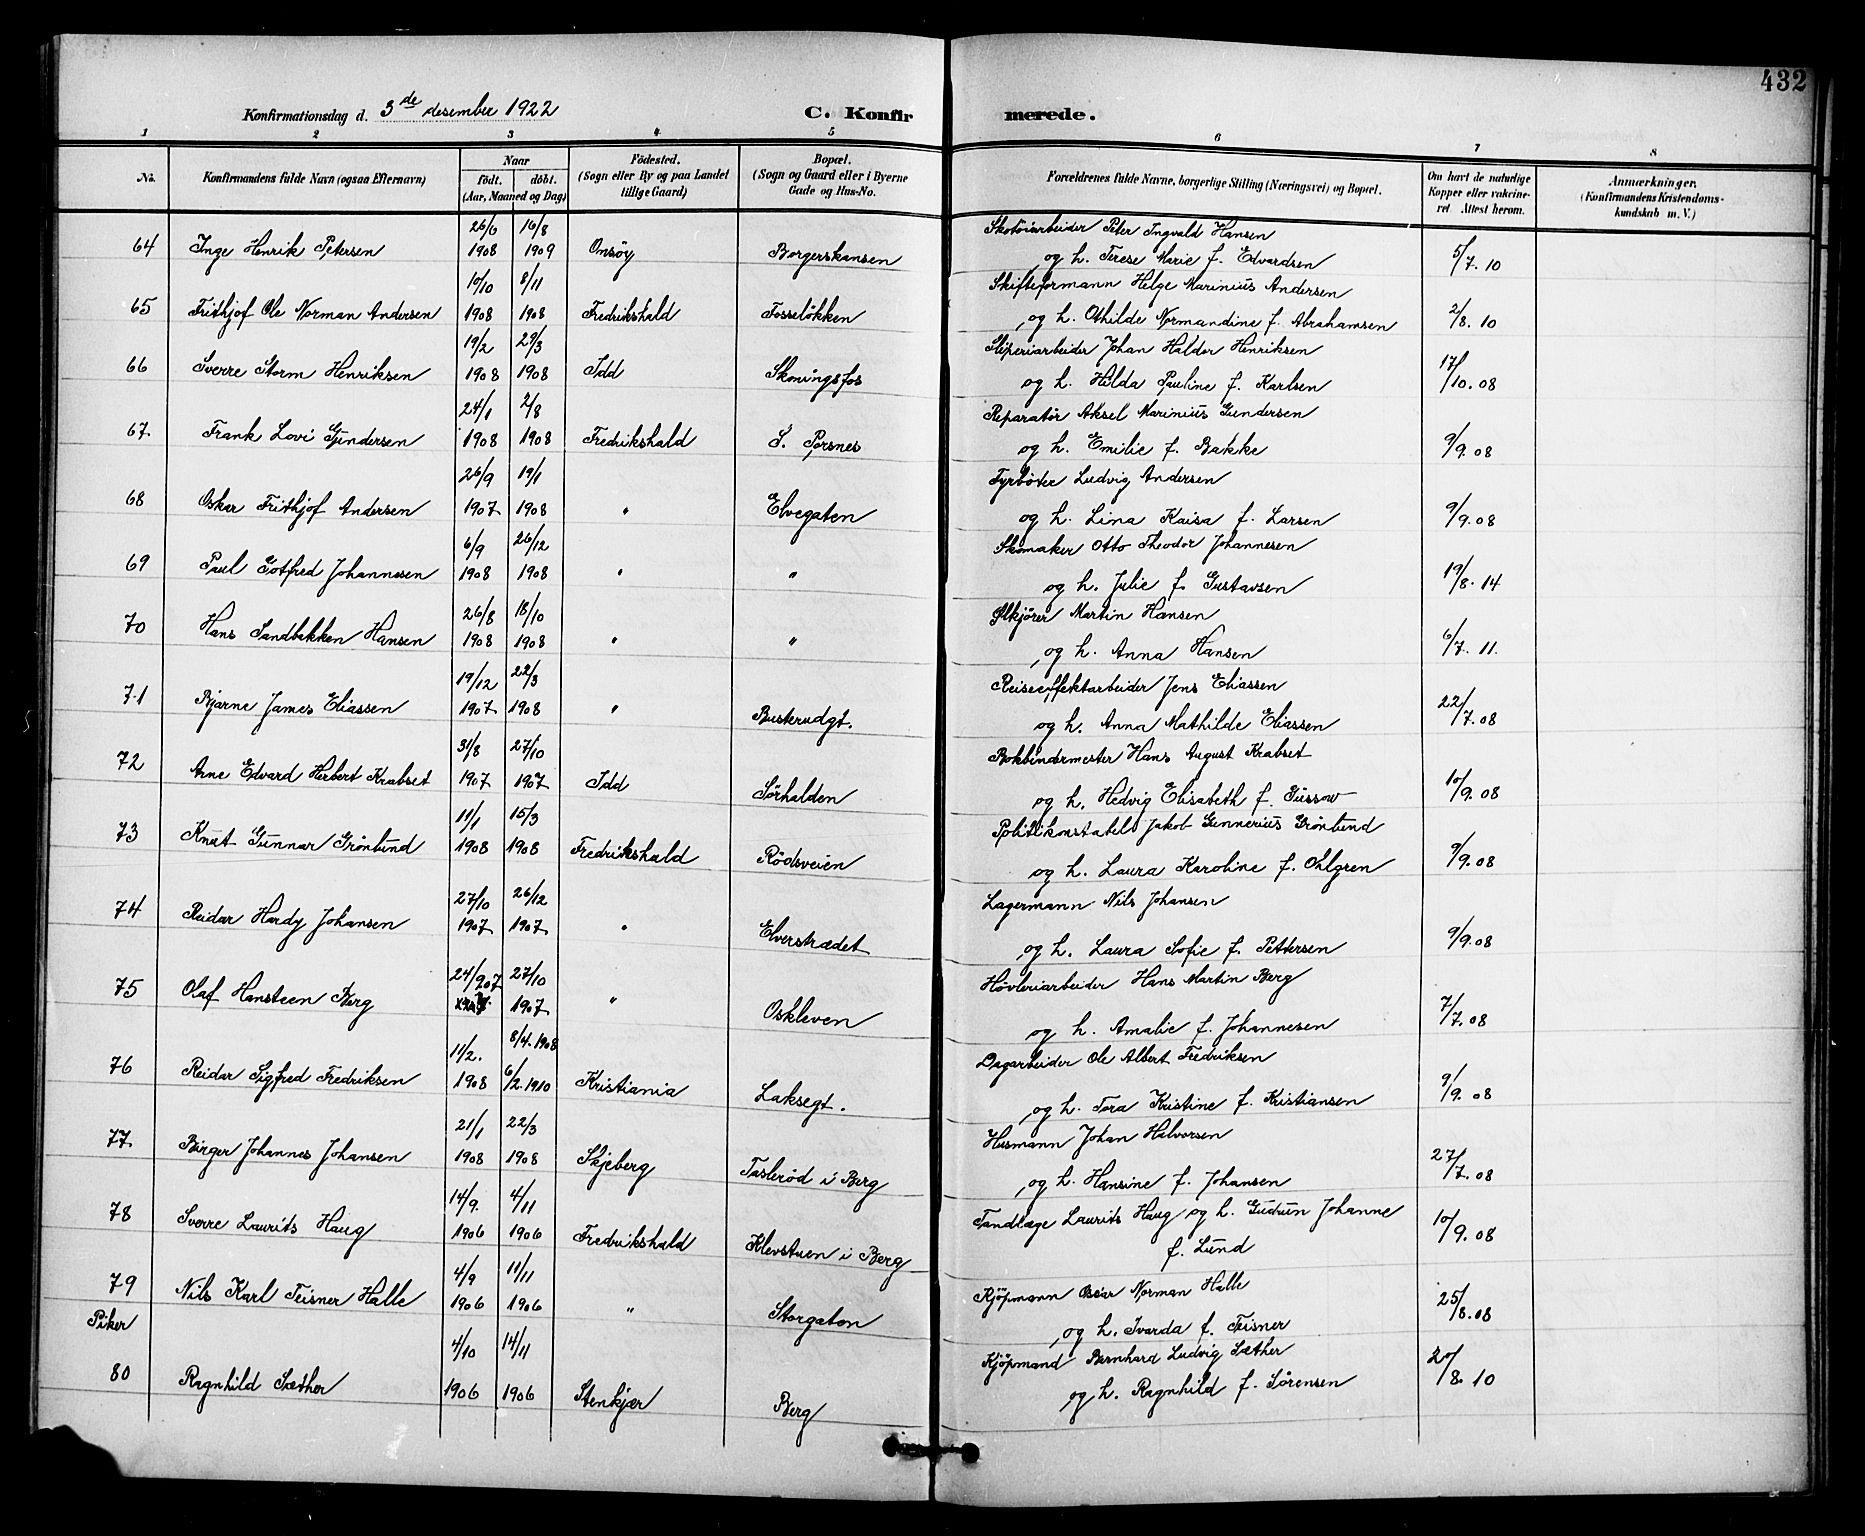 432
Konfirmationsdag d. 3de desember 1922 C. Konfirmerede.
1 2 3 4 5 6 7 8
No. Konfirmandens fulde Navn (ogsaa Efternavn) Naar födt. döbt. (Aar, Maaned og Dag) Födested. (Sogn eller By og paa Landet tillige Gaard) Bopæl. (Sogn og Gaard eller i Byerne Gade og Hus-No. Forældrenes fulde Navne, borgerlige Stilling (Næringsvei) og Bopæl. Om havt de naturlige Kopper eller vakcineret. Attest herom. Anmærkninger. (Konfirmandens Kristendomskundskab m. V.)
26/6 16/8 Skotöiarbeider Peter Ingvald Hansen
64 Inge Henrik Petersen 1908 1909 Onsöy Borgerskansen og h. Terese Marie f. Edvardsen 5/7. 10
10/10 8/11 Skifteformann Helge Marinius Andersen
65 Frithjof Ole Norman Andersen 1908 1908 Fredrikshald Fosseløkken og h. Othilde Normandine f. Abrahamsen 2/8. 10
19/2 29/3 Sliperiarbeider Johan Haldor Henriksen
66 Sverre Storm Henriksen 1908 1908 Idd Skoningsfos og h. Hilda Pauline f. Karlsen 17/10. 08
24/1 2/8 Reparatør Aksel Marinius Gundersen
67 Frank Lovi Gundersen 1908 1908 Fredrikshald S. Porsnes og h. Emilie f. Bakke 9/9. 08
26/9 19/1 Fyrbøter Ludvig Andersen
68 Oskar Frithjof Andersen 1907 1908 " Elvegaten og h. Lina Kaisa f. Larsen 9/9. 08
6/9 26/12 Skomaker Otto Theodor Johannesen
69 Paul Gotfred Johannesen 1908 1908 " " og h. Julie f. Gustavsen 19/8. 14
26/8 18/10 Ølkjører Martin Hansen
70 Hans Sandbakken Hansen 1908 1908 " " og h. Anna Hansen 6/7. 11.
19/12 22/3 Reiseeffektarbeider Jens Eliassen
71 Bjarne James Eliassen 1907 1908 " Busterudgt. og h. Anna Mathilde Eliassen 22/7. 08
31/8 27/10 Bokbindermester Hans August Krabset
72 Arne Edvard Herbert Krabset 1907 1907 Idd Sörhalden og h. Hedvig Elisabeth f. Güssow 10/9. 08
11/1 15/3 Politikonstabel Jakob Gunnerius Grönlund
73 Knut Gunnar Grönlund 1908 1908 Fredrikshald Rödsveien og h. Laura Karoline f. Ohlgren 9/9. 08
27/10 26/12 Lagermann Nils Johansen
74 Reidar Hardy Johansen 1907 1907 " Elverstrædet og h. Laura Sofie f. Pettersen 9/9. 08
24/9 07 27/10 Høvleriarbeider Hans Martin Berg
75 Olaf Hansteen Berg 1907 " Oskleven og h. Amalie f. Johannesen 7/7. 08
11/2. 8/4. 1908 Dagarbeider Ole Albert Fredriksen
76 Reidar Sigfred Fredriksen 1908 6/2. 1910 Kristiania Laksegt. og h. Tora Kristine f. Kristiansen 9/9. 08
21/1 22/3 Husmann Johan Halvorsen
77 Birger Johannes Johansen 1908 1908 Skjeberg Taslerød i Berg og h. Hansine f. Johansen 27/7. 08
14/9. 4/11 Tandlæge Laurits Haug og h. Gudrun Johanne
78 Sverre Laurits Haug 1906 1906 Fredrikshald Klevstuen i Berg f. Lund 10/9. 08
4/9 11/11 Kjöpmann Oscar Norman Halle
79 Nils Karl Teisner Halle 1906 1906 " Storgaten og h. Ivarda f. Teisner 25/8. 08
Piker
4/10 14/11 Kjöpmand Bernhard Ludvig Sæther
80 Ragnhild Sæther 1906 1906 Stenkjær Berg og h. Ragnhild f. Sörensen 20/8. 10